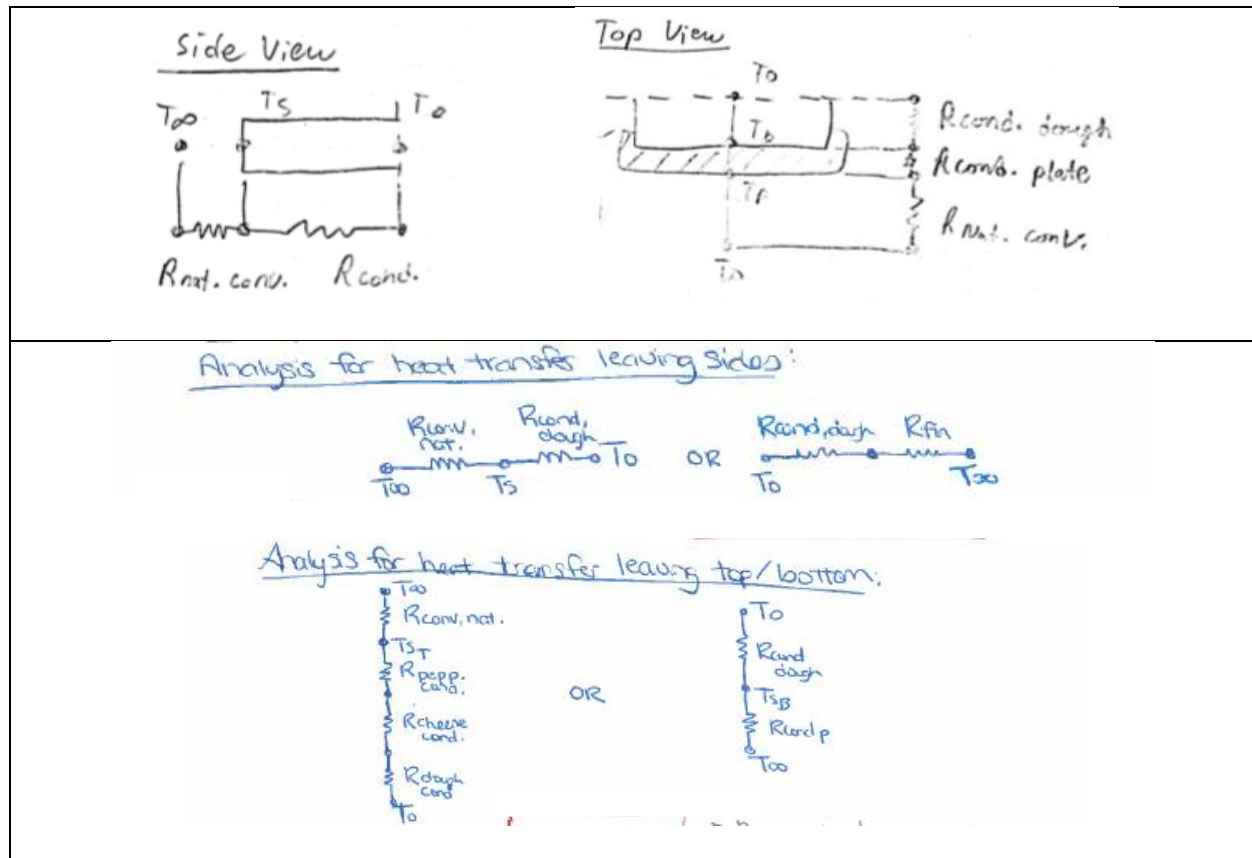 Side View
T∞
Ts
To
Rnat. conv.
Rcond.
Top View
To
Tb
Tp
Rcond. dough
Rcond. plate
Rnat. conv.
Analysis for heat transfer leaving sides:
Rconv, nat.
Rcond, dough
T∞
Ts
To
OR
Rcond, dough
Rfin
To
T∞
Analysis for heat transfer leaving top/bottom:
T∞
Rconv, nat.
TsT
Rpepp. cond.
Rcheese cond.
Rdough cond
To
OR
To
Rcond dough
TsB
Rcond p
T∞